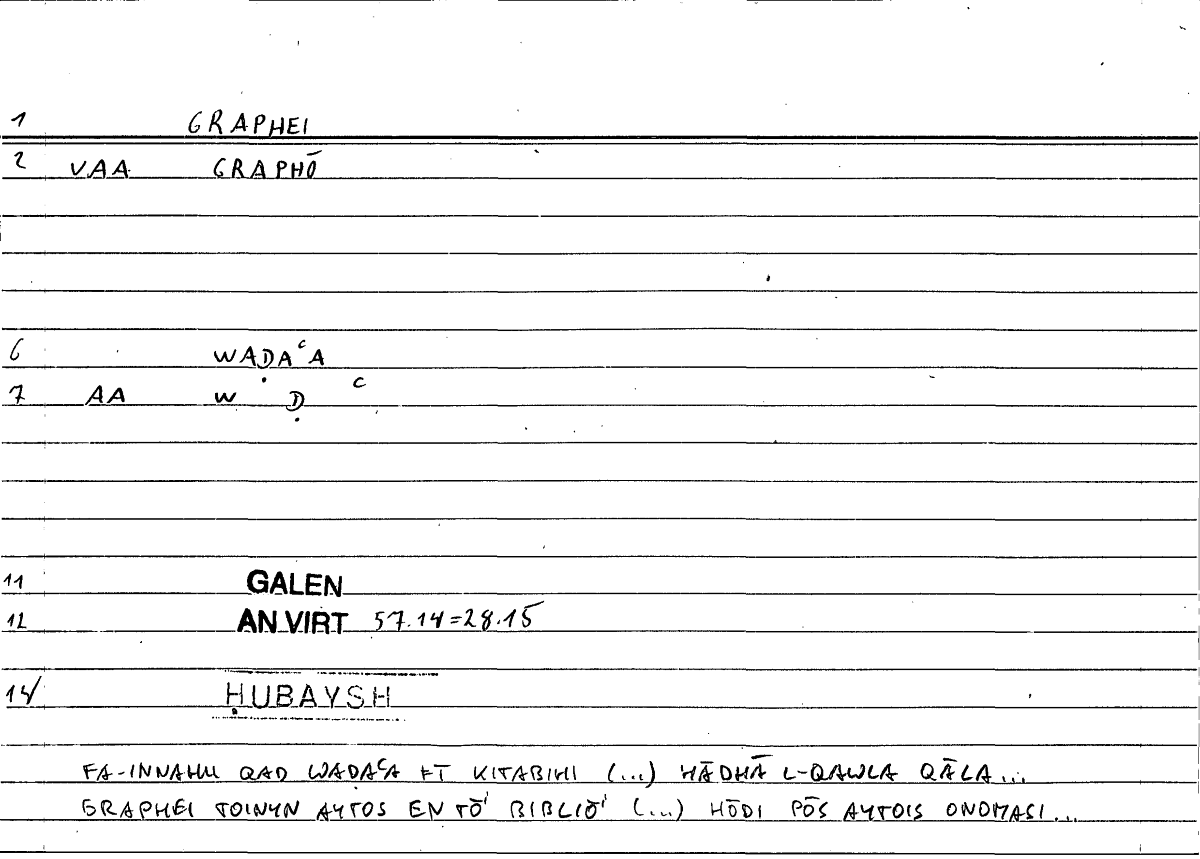 1 GRAPHEI
2 VAA GRAPHŌ
6 WAḌAᶜA
7 AA W Ḍ ᶜ
11 GALEN
12 AN VIRT 57.14=28.15
14/ ḤUBAYSH
FA-INNAHU QAD WADAᶜA FĪ KITABIHI (...) HĀDHĀ L-QAWLA QĀLA...
GRAPHEI TOINYN AYTOS EN TŌ' BIBLIŌ' (...) HŌDI PŌS AYTOIS ONOMASI...